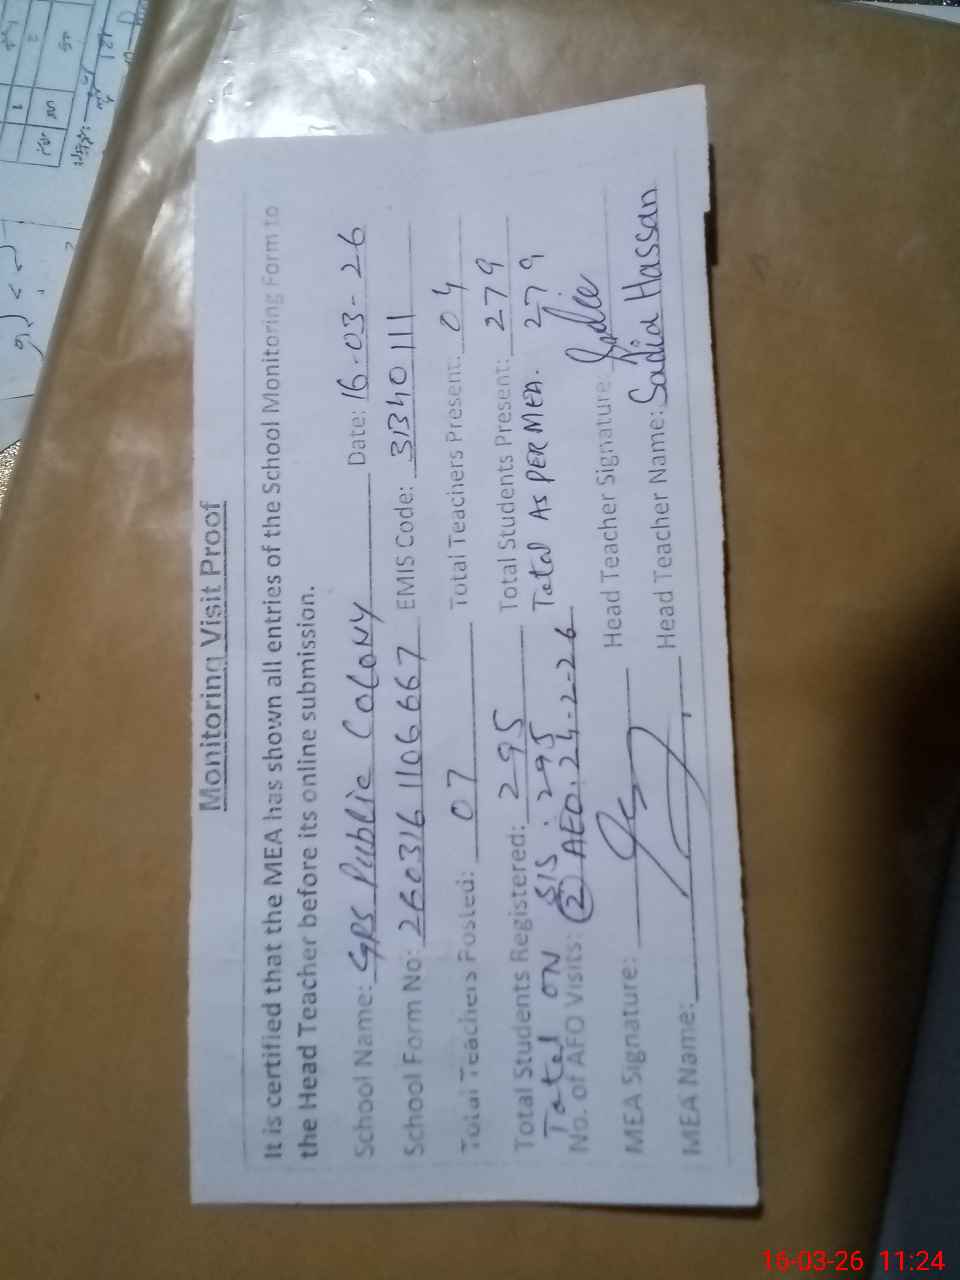 Monitoring Visit Proof
It is certified that the MEA has shown all entries of the School Monitoring Form to
the Head Teacher before its online submission.
School Name: GPS Public Colony Date: 16-03-26
School Form No: 2603161106667 EMIS Code: 31340111
Total Teachers Posted: 07 Total Teachers Present: 04
Total Students Registered: 295 Total Students Present: 279
Total ON SIS. 295 Total AS PER MEA. 279
No. of AEO Visits: 2 AEO. 24-2-26
MEA Signature: Head Teacher Signature:
MEA Name: Head Teacher Name: Sadia Hassan
16-03-26 11:24